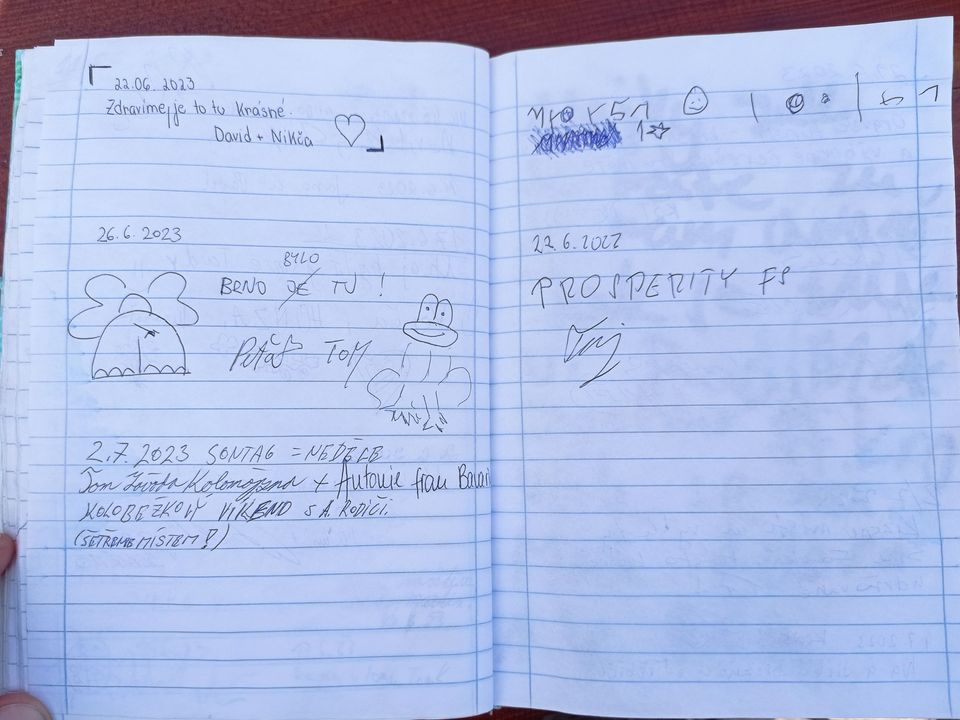 22.06. 2023
Zdravíme, je to tu krásné.
David + Nikča
26.6. 2023
BYLO
BRNO JE TU !
Peťáš TOM
2.7. 2023 SONTAG = NEDĚLE
Tom + Antonie from Bavari
KOLOBĚŽKOVÝ VÍKEND S A. RODIČI.
(ŠETŘEME MÍSTEM!)
22.6.2022
PROSPERITY FS